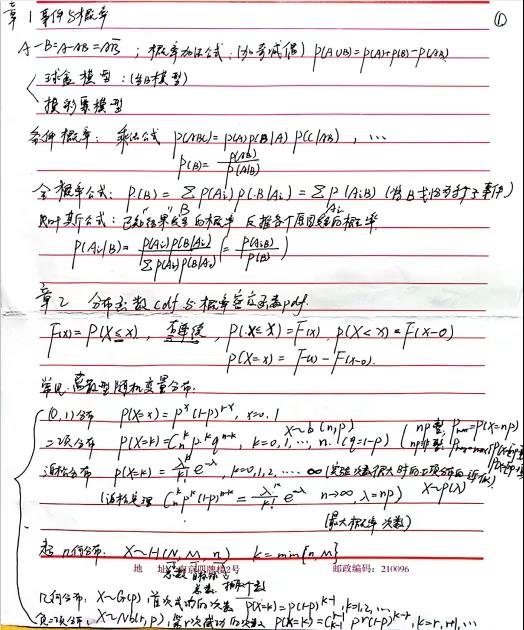 章1 事件与概率 ①
A-B=A-AB=AB̅ ; 概率加法公式:(加奇减偶) P(A∪B)=P(A)+P(B)-P(AB)
球盒模型:(占B模型)
摸彩票模型
条件概率: 乘法公式 P(ABC)=P(A)P(B|A)P(C|AB), …
P(B)= P(AB)/P(A|B)
全概率公式: P(B)=ΣP(Ai)P(B|Ai)=ΣP(AiB)
贝叶斯公式: 已知"结果"B发生的概率 反推各个原因Ai的概率
P(Ai|B)= P(Ai)P(B|Ai)/ΣP(Ai)P(B|Ai) (= P(AiB)/P(B))
章2 分布函数cdf与概率密度函数pdf.
F(x)=P(X≤x), 右连续 P(X≤x)=F(x), P(X<x)=F(x-0)
P(X=x)=F(x)-F(x-0).
常见离散型随机变量分布.
(0,1)分布 P(X=x)=p^x(1-p)^{1-x}, x=0,1
二项分布 P(X=k)=C_n^k p^k q^{n-k}, k=0,1,…,n. (q=1-p) X~b(n,p)
泊松分布 P(X=k)=λ^k/k! e^{-λ}, k=0,1,2,…∞ X~P(λ)
(泊松定理 C_n^k p^k(1-p)^{n-k}=λ^k/k! e^{-λ} n→∞ λ=np)
(最大概率次数)
超几何分布: X~H(N,M,n) k=min{n,M}
地 址:南京四牌楼2号 邮政编码:210096
几何分布: X~G(p), 首次成功的次数 P(X=k)=p(1-p)^{k-1}, k=1,2,…
负二项分布: X~Nb(r,p), 第r次成功的次数 P(X=k)=C_{k-1}^{r-1} p^r(1-p)^{k-r}, k=r,r+1,…